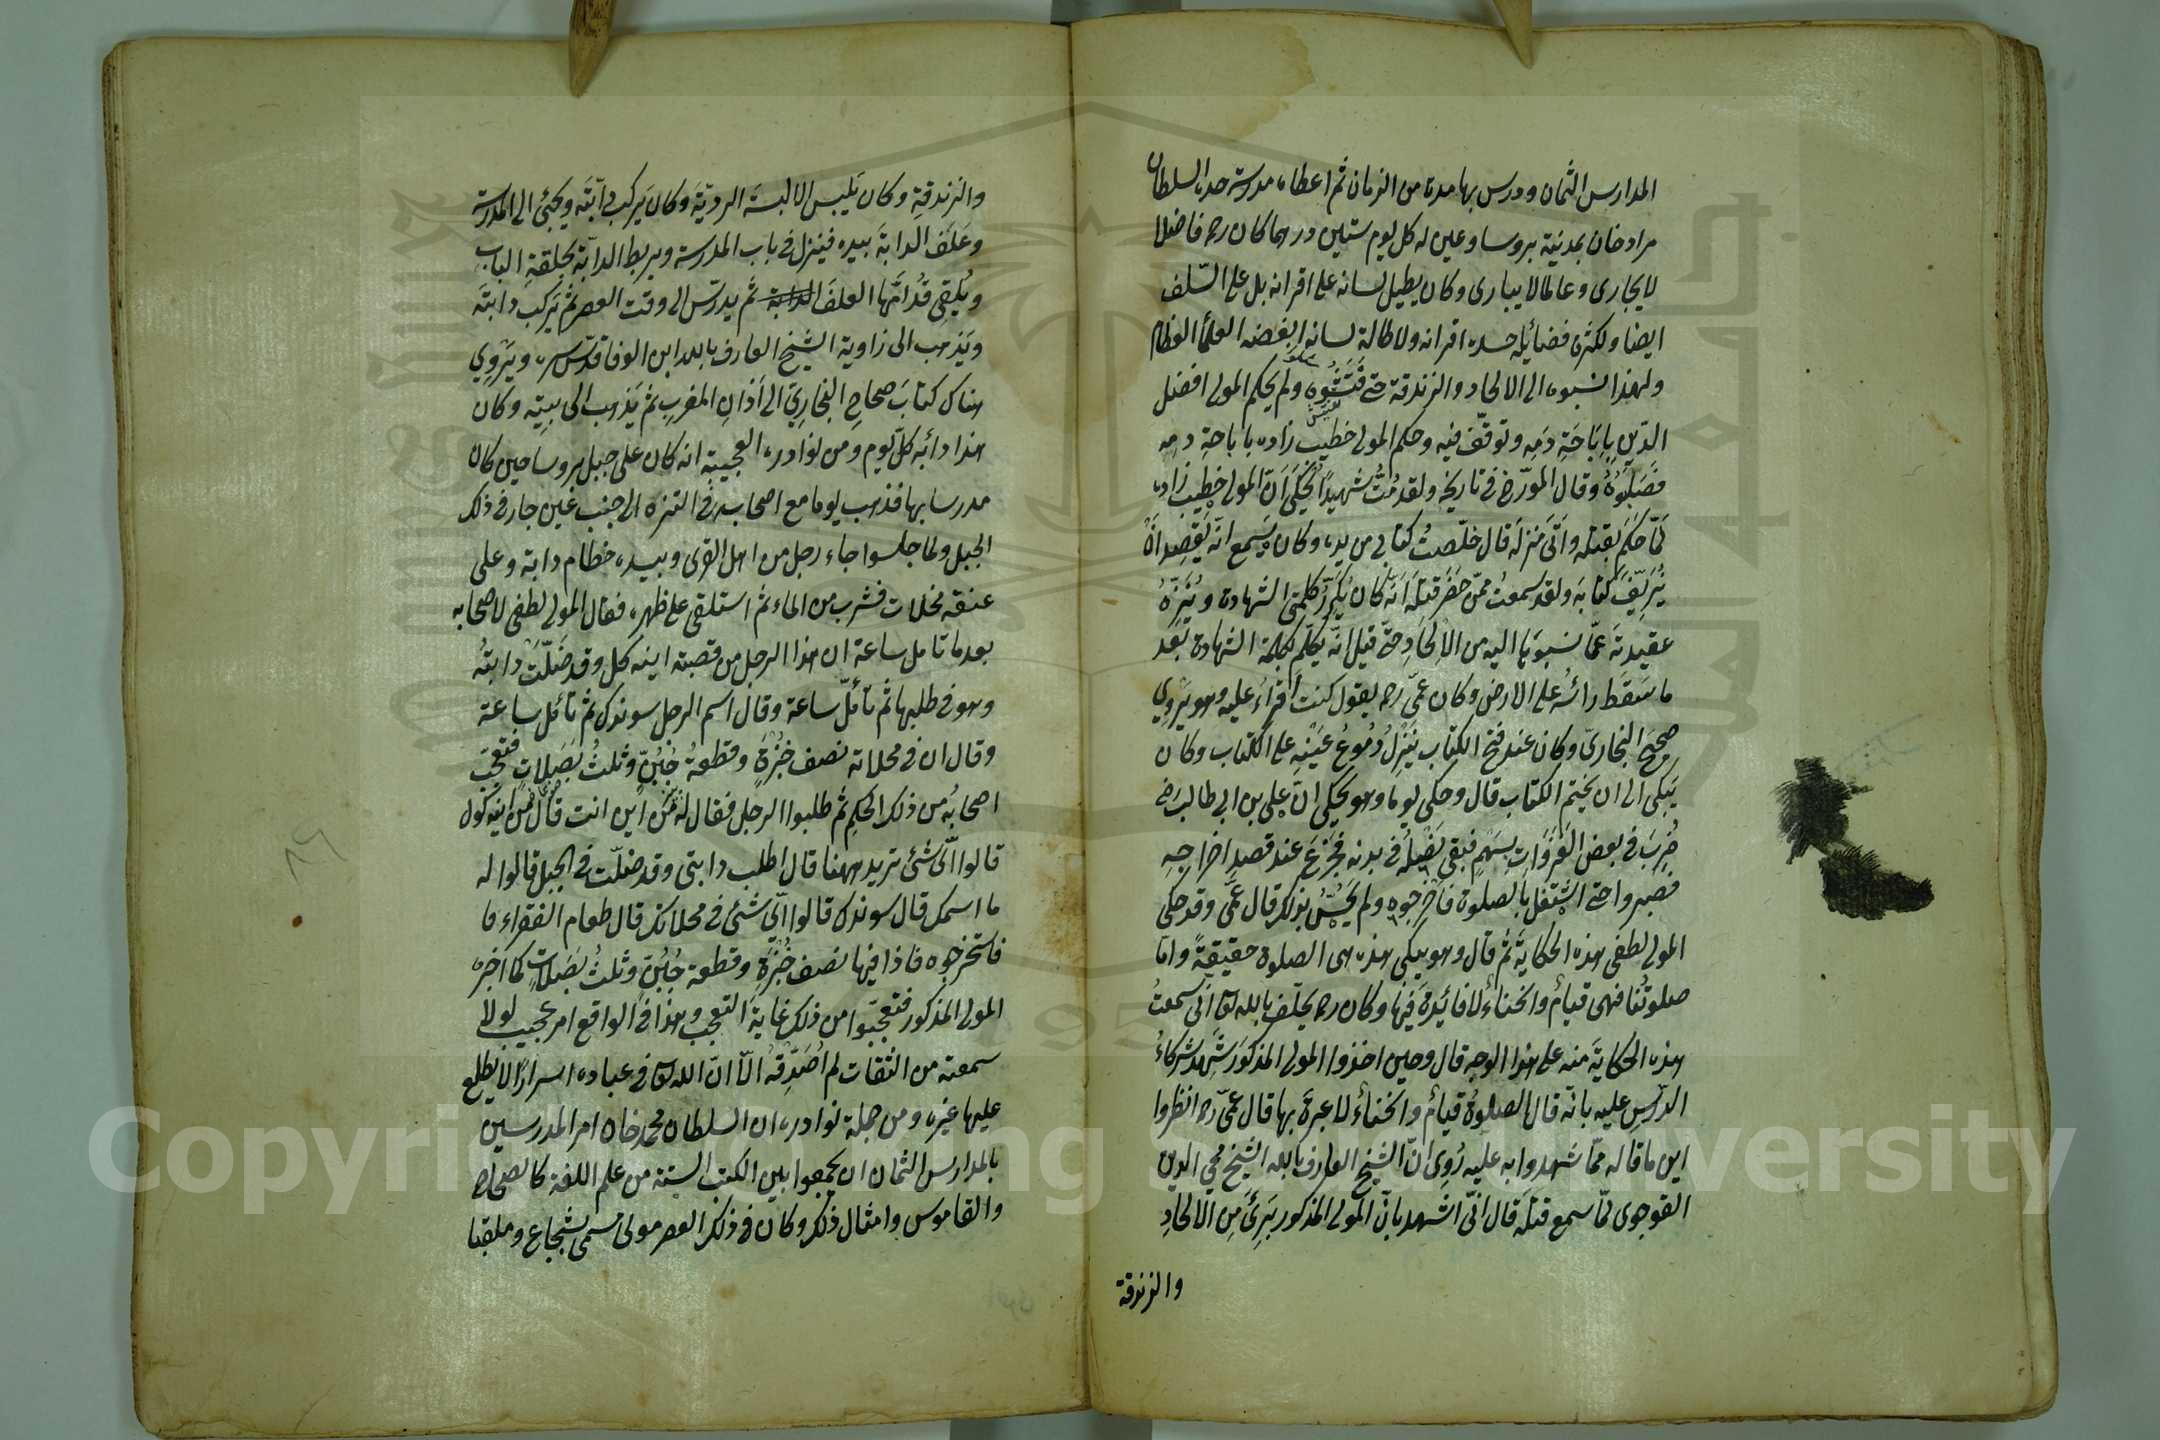 المدارس الثمان ودرس بها مدة من الزمان ثم اعطاه مدرسة جده السلطان
مراد خان بمدينة بروسا وعين له كل يوم ستين درهما كان رح فاضلا
لا يجارى وعالما لا يبارى وكان يطيل لسانه على اقرانه بل على السّلف
ايضا ولكثرة فضائله حسده اقرانه ولاطالة لسانه ابغضه العلماء العظام
ولهذا نسبوه الى الالحاد والزندقة حتى فتّشوه ولم يحكم المولى افضل
الدّين بِاِبَاحَةِ دَمِه وتوقّف فيه وحكم المولى خطيب زاده باباحة دمه
فَقَتَلُوهُ وقال المورّخ في تاريخه ولقد مُتُّ شهيدًا يُحْكَى اَنّ المولى خطيب زاده
لَمّا حَكَمَ بقتله وَاَتَى مَنزلَه قال خلّصتُ كتابي من يده وكان يسمع انّه يَقْصِد اَنْ
يُزَيِّفَ كتابَه ولقد سمعتُ ممّن حَضَرَ قتلَه اَنّه كان يُكَرِّرُ كلمتي الشهادة ويُنَزِّهُ
عقيدتَه عمّا نسبوها اليه من الاِلحادِ حتّى قيل انّه تكلّم بكلمة الشهادة بَعْد
ما سَقَط رأسُه على الارض وكان عمّي رح يقول كنت اَقْرَاُ عليه وهو يَرْوِي
صحيح البخاريّ وكان عند فتح الكتاب يَنْزِلُ دُمُوعُ عَيْنِهِ على الكتاب وكان
يَبْكي الى ان يختم الكتاب قال وحكى يوما وهو يحكى انّ علي بن ابي طالب رض
ضُرِبَ في بعض الغَزَوَاتِ بسَهْمٍ فبقي نَصْلُهُ في بدنه فجَزِعَ عند قصدِ اخراجِهِ
فصبروا حتى اشتغل بالصلوة فاَخْرَجُوه ولم يَحُسَّ بذلك قال عمّي وقد حكى
المولى لطفي هذه الحكايةَ ثم قال وهو يبكي هذه هى الصلوة حقيقةً وامّا
صلوتُنا فهى قيامٌ وانحناءٌ لا فائِدةَ فيها وكان رح يحلّف بالله تع انّي سمعتُ
هذه الحكايةَ منه على هذا الوجه قال وحين اخذوا المولى المذكورَ شَهِدَ شركاءُ
الدّرسِ عليه بانّه قال الصلوةُ قيامٌ وانحناءٌ لا عبرةَ بها قال عمّي رح انظروا
اين ما قاله ممّا شهدوا به عليه رُوِي انّ الشيخ العارف بالله الشيخ محي الدين
القوجوى لمّا سمع قتله قال انّى اشهد بانّ المولى المذكور بَرِئٌ مِن الالحادِ
والزندقة
والزندقةِ وكان يَلبِس الالبسةَ الرديّةَ وكان يَركب دابّتَه ويجئ الى المدرسة
وعَلَف الدابةَ بيده فينزل في باب المدرسة ويربط الدابّة بحلقةِ الباب
ويُلقِى قدّامَها العلفَ الدابة ثم يدرّس الى وقت العصر ثم يركب دابتَه
ويَذهب الى زاوية الشيخ العارف بالله ابن الوفا قدّس سره ويَرْوِي
هناك كتابَ صحاحِ البخاريّ الى اَذانِ المغربِ ثم يَذهب الى بيته وكان
هذا دأبه كلّ يوم ومن نوادره العجيبة انه كان على جبل بروسا حين كان
مدرسا بها فذهب يوما مع اصحابه في التنزه الى جنب عين جار في ذلك
الجبل ولما جلسوا جاء رجل من اهل القرى وبيده خطام دابة وعلى
عنقه مخلات فشرب من الماء ثم استلقى على ظهره فقال المولى لطفي لاصحابه
بعد ما تامل ساعة ان هذا الرجل من قصبة اينه كل وقد ضَلّت دابتُه
وهو في طلبها ثم تأملّ ساعة وقال اسم الرجل سوندك ثم تأمّل ساعة
وقال ان في مخلاته نصف خُبْزَةٍ وقطعةُ جُبُنٍّ وثلثُ بَصَلاتٍ فتعجّب
اصحابُه من ذلك الحكم ثم طلبوا الرجل فقال له من اين انت قال من اينه كول
قالوا اىّ شئ تريد ههنا قال اطلب دابتى وقد ضلّت في الجبل قالوا له
ما اسمك قال سوندك قالوا اىّ شئ في مخلاتك قال طعام الفقراء فا
فاستخرجوه فاذا فيها نصف خُبْزَةٍ وقطعة جُبُنّةٍ وثلثُ بَصَلاتٍ كما اخبره
المولى المذكور فتعجّبوا من ذلك غايةَ التعجب وهذا في الواقع امر عجيب لولا
سمعته من الثقات لم اُصَدِّقْهُ الاّ انّ الله تع في عباده اسرارًا لا يطلع
عليها غيره ومن جملة نوادره ان السلطان محمد خان امر المدرسين
بالمدارس الثمان ان يجمعوا بين الكتب الستة من علم اللغة كالصحاح
والقاموس وامثال ذلك وكان في ذلك العصر مولى مسمى بشجاع وملقبا
Copyright © King Saud University
1957